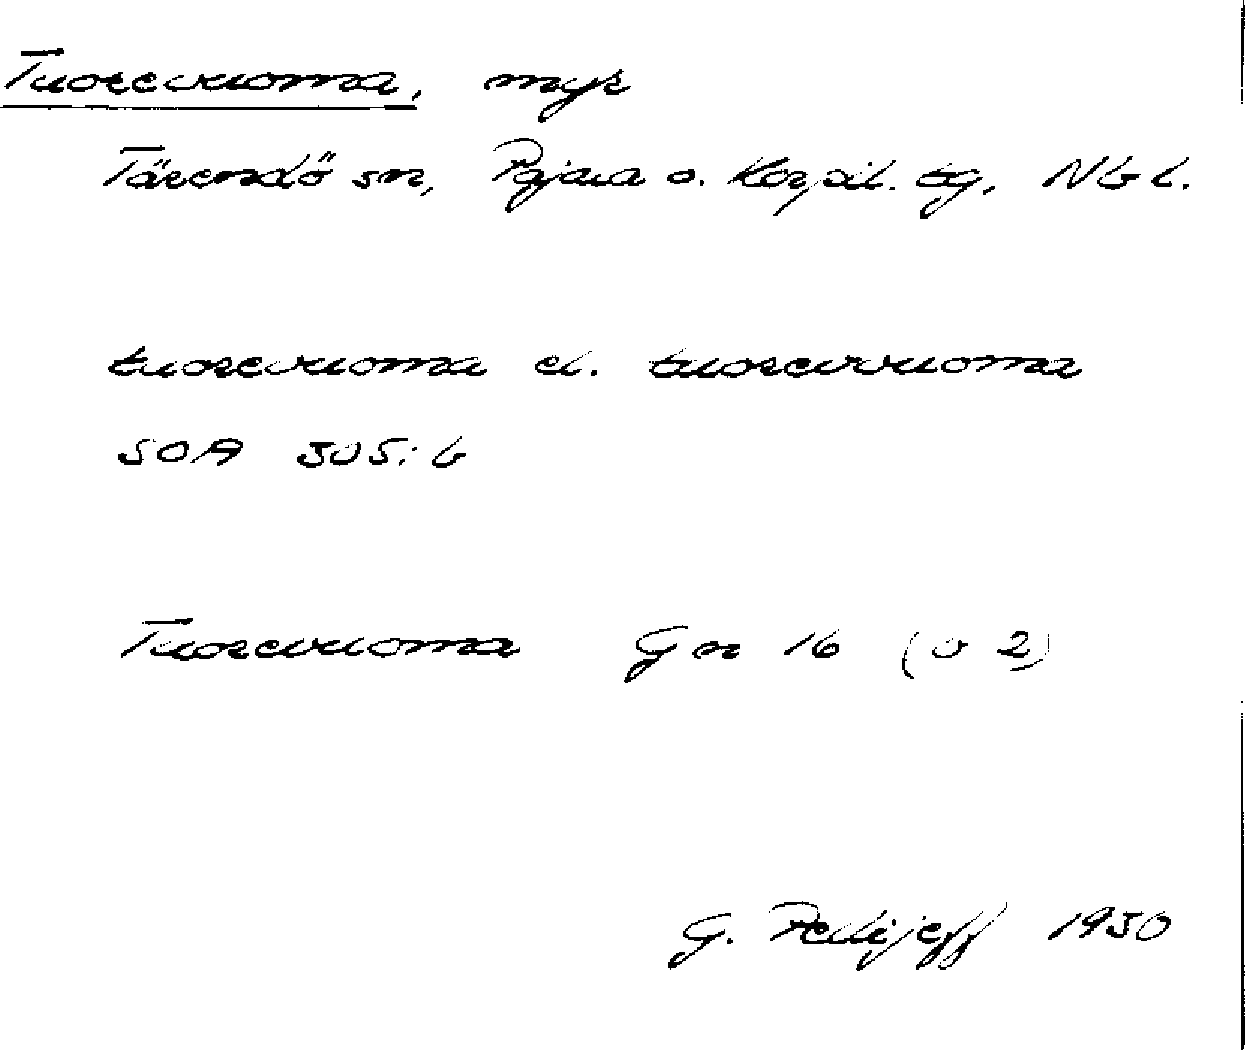 Tuorevuoma, myr
Tärendö sn, Pajala o. Korpil. tg, Nb l.
tuorevuoma el. tuorevvuoma
SOA 305:6
Tuorevuoma Gr 16 (o 2)
G. Pellijeff 1950